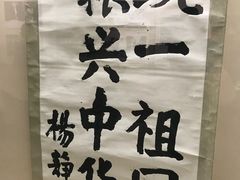 统一祖国
振兴中华
楊静